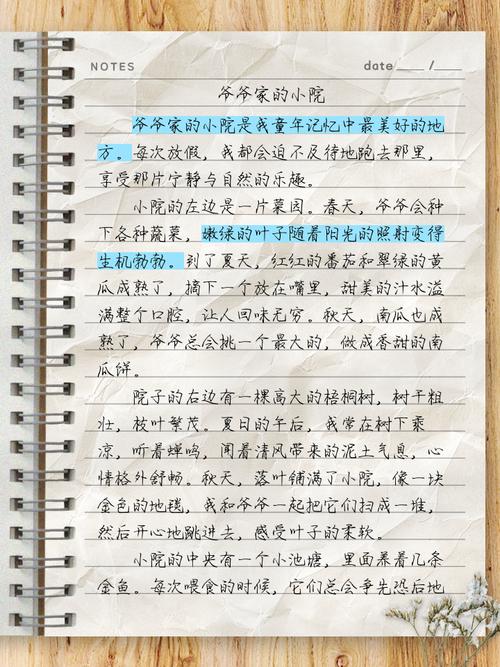 NOTES date /
爷爷家的小院
爷爷家的小院是我童年记忆中最美好的地
方。每次放假，我都会迫不及待地跑去那里，
享受那片宁静与自然的乐趣。
小院的左边是一片菜园。春天，爷爷会种
下各种蔬菜，嫩绿的叶子随着阳光的照射变得
生机勃勃。到了夏天，红红的番茄和翠绿的黄
瓜成熟了，摘下一个放在嘴里，甜美的汁水溢
满整个口腔，让人回味无穷。秋天，南瓜也成
熟了，爷爷总会挑一个最大的，做成香甜的南
瓜饼。
院子的右边有一棵高大的梧桐树，树干粗
壮，枝叶繁茂。夏日的午后，我常在树下乘
凉，听着蝉鸣，闻着清风带来的泥土气息，心
情格外舒畅。秋天，落叶铺满了小院，像一块
金色的地毯，我和爷爷一起把它们扫成一堆，
然后开心地跳进去，感受叶子的柔软。
小院的中央有一个小池塘，里面养着几条
金鱼。每次喂食的时候，它们总会争先恐后地